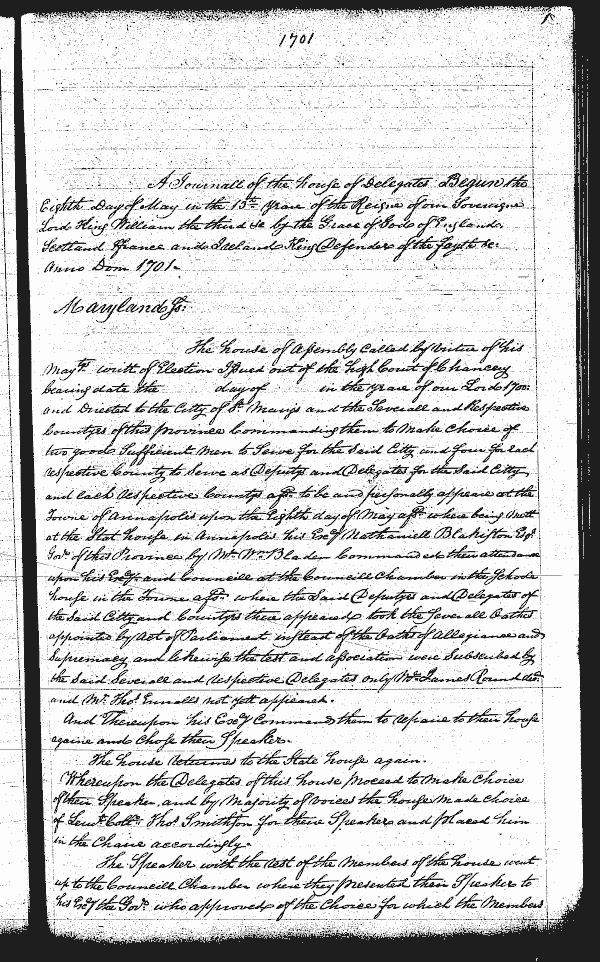 1701
A Journall of the house of Delegates Begun the
Eighth Day of May in the 13th yeare of the Reigne of our Sovereigne
Lord King William the third &c by the Grace of God of England
Scotland ffrance and Ireland King Defender of the fayth &c.
Anno Dom 1701.
Maryland ss:
The house of Assembly Called by Virtue of his
Maj:ts writt of Election Issued out of the high Court of Chancery
bearing date the day of in the yeare of our Lord 1700
and Directed to the Citty of St. Marys and the Severall and Respective
Countyes of this Province Commanding them to Make Choice of
two good Sufficient men to Serve for the Said Citty and four for each
respective County to Serve as Deputys and Delegates for the Said Citty
and each respective County afd. to be and personally appeare at the
Towne of Annapolis upon the Eighth day of May afd. where being mett
at the Stat house in Annapolis his Excy Nathaniell Blakiston Esqr.
Govr. of this Province by Mr. Wm. Bladen Commanded their attendance
upon his Excy. and Councill at the Councill Chamber in the Schole
house in the Towne afd. where the Said Deputyes and Delegates of
the Said Citty and Countyes there appeared took the Severall Oathes
appointed by act of Parliament instead of the Oaths of Allegiance and
Supremacy and likewise the test and association were Subscribed by
the Said Severall and respective Delegates only Mr. James Round
and Mr. Thos. Ennalls not yett appeared.
And Thereupon his Excy Command them to repaire to their house
againe and Chose their Speaker.
The house returned to the State house again.
Whereupon the Delegates of this house proceed to Make Choice
of their Speaker and by Majority of voices the house made choice
of Leiut. Coll. Thos. Smithson for their Speaker and placed him
in the Chaire accordingly.
The Speaker with the rest of the Members of the house went
up to the Councill Chamber where they presented their Speaker to
his Excy the Govr. who approved of the Choice for which the Members